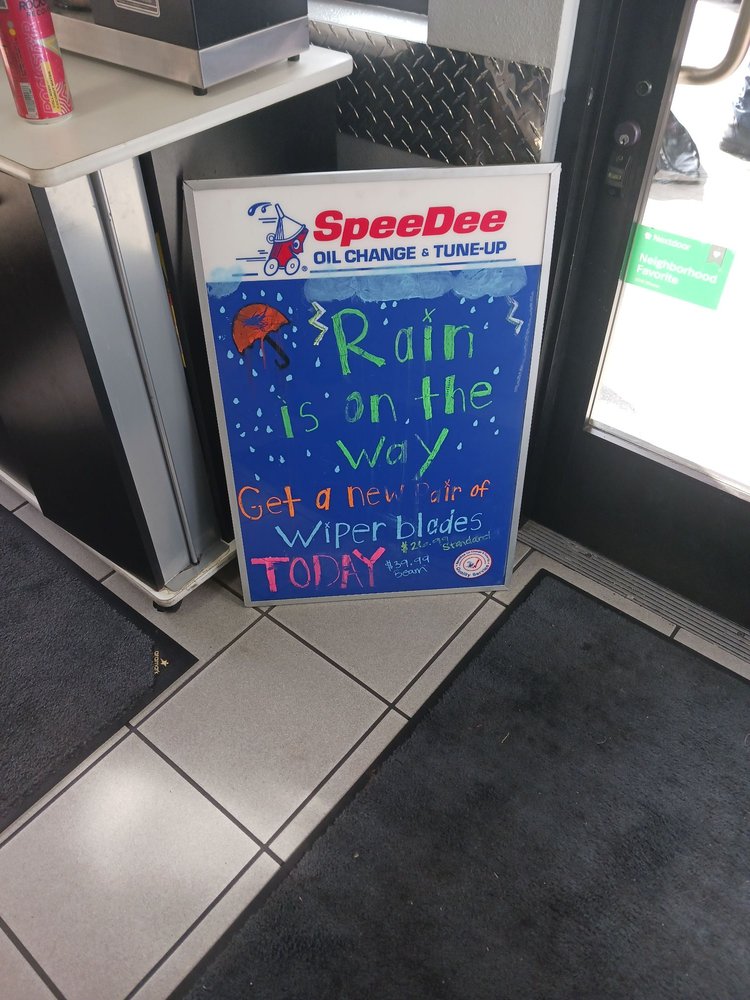 SpeeDee
OIL CHANGE & TUNE-UP
Rain
is on the
way
Get a new Pair of
wiper blades
$26.99 Standard
TODAY
$39.99
beam
Nextdoor
Neighborhood
Favorite
aramark